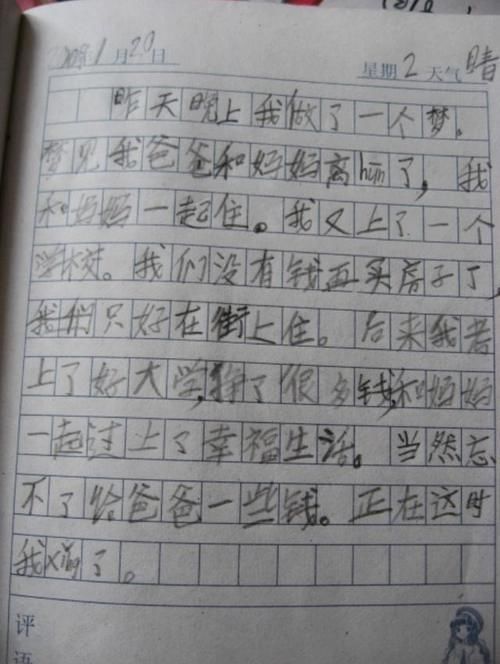 月20日 星期2 天气晴
昨天晚上我做了一个梦。
梦见我爸爸和妈妈离hūn了，我
和妈妈一起住。我又上了一个
学校。我们没有钱再买房子了，
我们只好在街上住。后来我考
上了好大学，挣了很多钱，和妈妈
一起过上了幸福生活。当然忘
不了给爸爸一些钱。正在这时
我xǐng了。
评
语